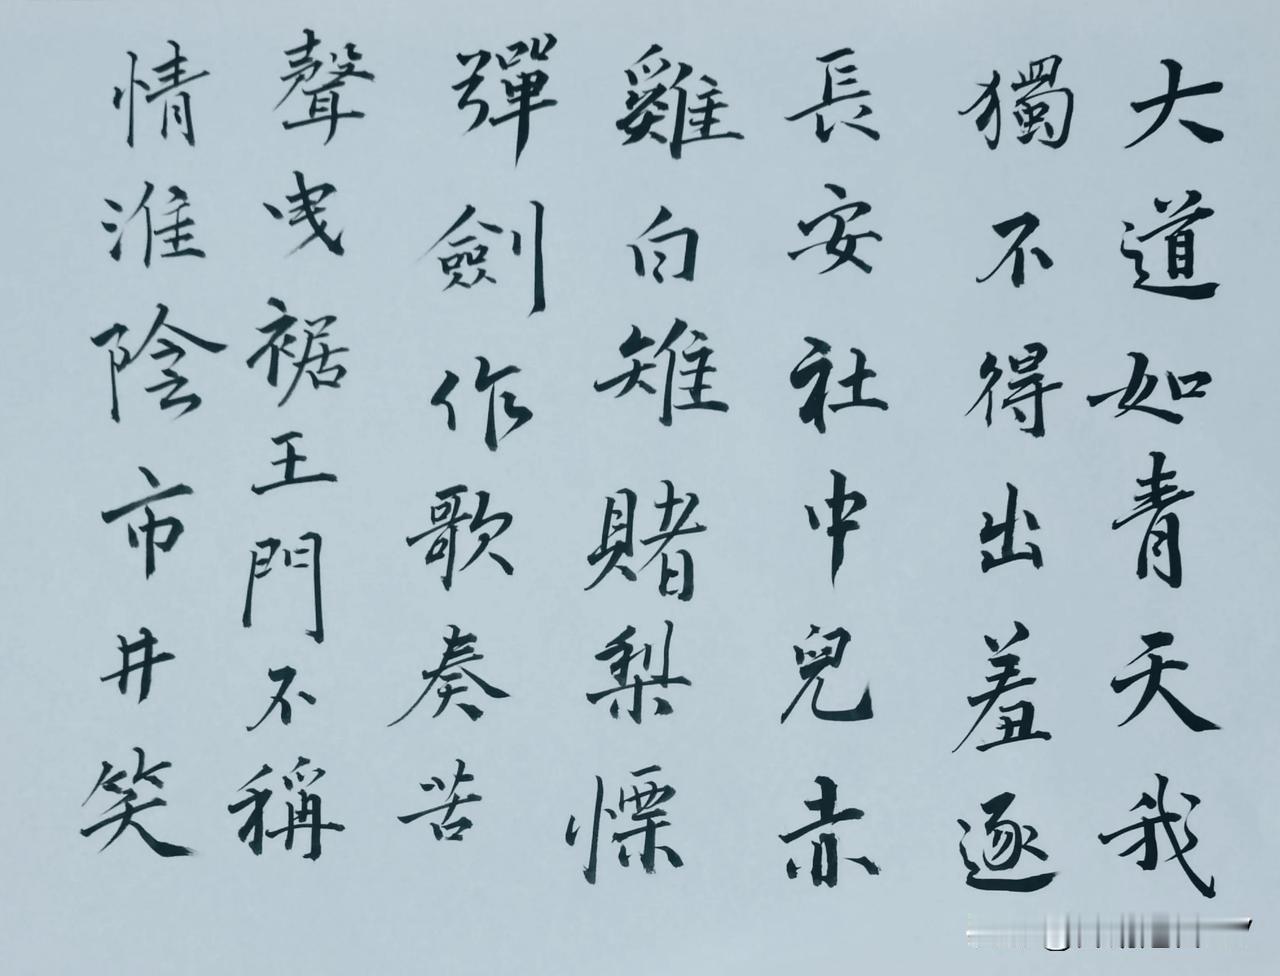 大道如青天我
獨不得出羞逐
長安社中兒赤
雞白雉賭梨慄
彈劍作歌奏苦
聲曳裾王門不稱
情淮陰市井笑